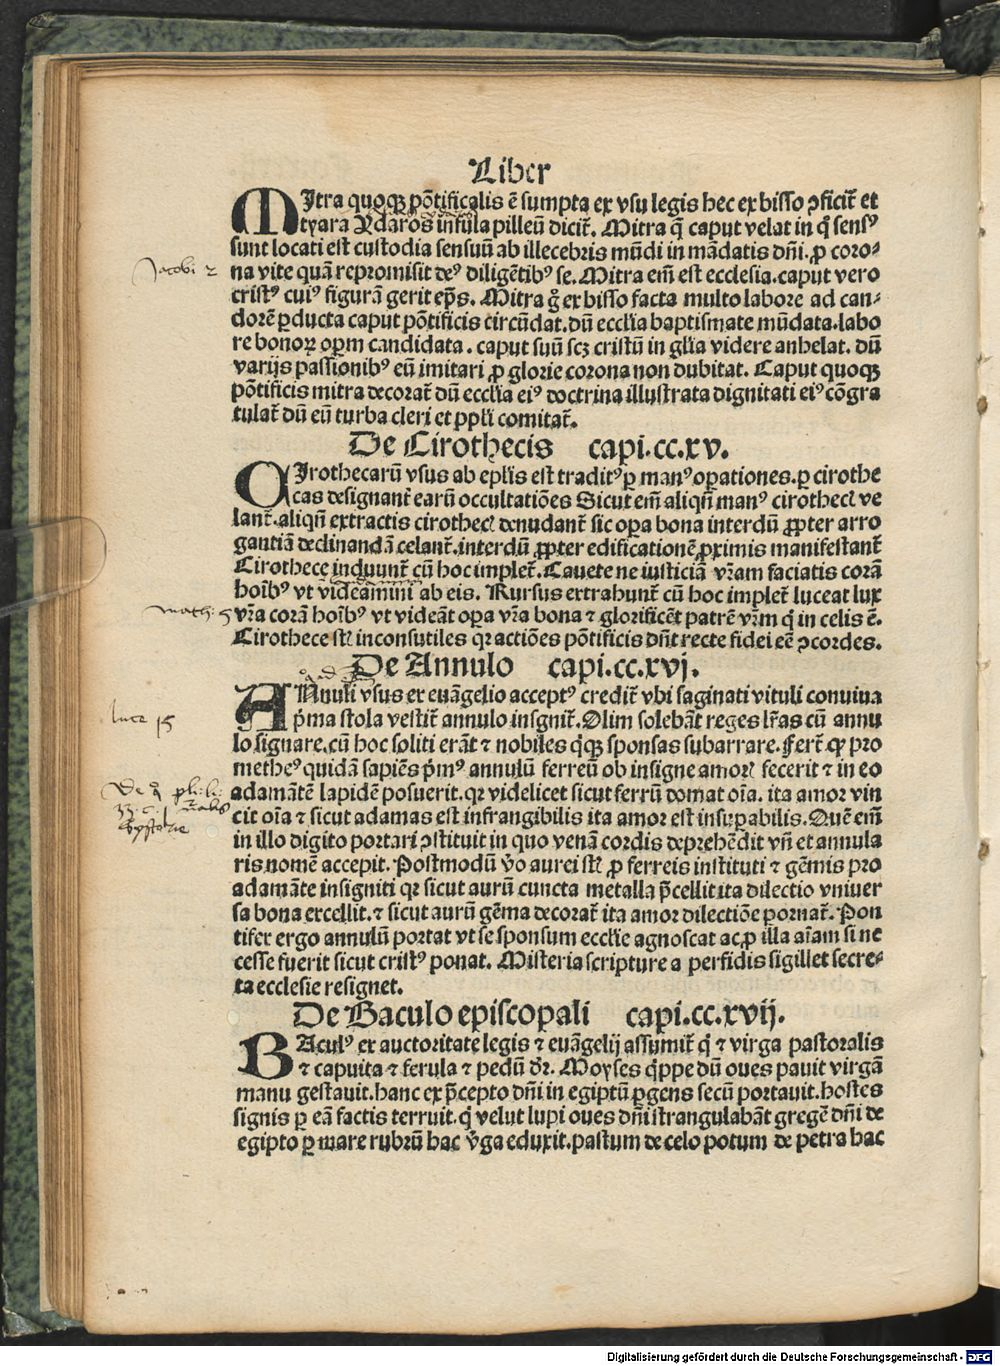 Liber
MItra quoqꝫ põtificalis ẽ sumpta ex vsu legis hec ex bisso ꝯficit̃ et
tyara ⁊ cydaros insula pilleũ dicit̃. Mitra q̃ caput velat in q̃ sensꝰ
sunt locati est custodia sensuũ ab illecebris mũdi in mãdatis dñi. ꝓ coro⸗
na vite quã repromisit deꝰ diligẽtibꝰ se. Mitra eñi est ecclesia. caput vero
cristꝰ cuiꝰ figurã gerit ep̃s. Mitra g̃ ex bisso facta multo labore ad can⸗
dorẽ ꝑducta caput põtificis circũdat. dũ eccl̃ia baptismate mũdata. labo
re bonoꝝ oꝑm candidata. caput suũ scꝫ cristũ in gl̃ia videre anhelat. dũ
varijs passionibꝰ eũ imitari ꝓ glorie corona non dubitat. Caput quoqꝫ
põtificis mitra decorat̃ dũ eccl̃ia eiꝰ doctrina illustrata dignitati eiꝰ cõgra
tulat̃ dũ eũ turba cleri et ppl̃i comitat̃.
De Cirothecis capi.cc.xv.
CIrothecarũ vsus ab ep̃lis est traditꝰ ꝑ manꝰ oꝑationes. ꝑ cirothe
cas designant̃ earũ occultatiões Sicut em̃ aliqñ manꝰ cirothecꝭ ve
lant̃. aliqñ extractis cirothecꝭ denudant̃ sic oꝑa bona interdũ ꝓpter arro
gantiã declinandã celant̃. interdũ ꝓpter edificationẽ ꝓximis manifestant̃
Cirothece induunt̃ cũ hoc implet̃. Cauete ne iusticiã vr̃am faciatis corã
hoĩbꝰ vt videamini ab eis. Rursus extrahunt̃ cũ hoc implet̃ luceat lux
vr̃a corã hoĩbꝰ vt videãt oꝑa vr̃a bona ⁊ glorificẽt patrẽ vr̃m q̃ in celis ẽ.
Cirothece st̃ inconsutiles qꝛ actiões põtificis dñt recte fidei eẽ ꝯcordes.
De Annulo capi.cc.xvj.
ANnuli vsus ex euãgelio acceptꝰ credit̃ vbi saginati vituli conuiua
p̃ma stola vestit̃ annulo insgnit̃. Olim solebãt reges lr̃as cũ annu
lo signare. cũ hoc soliti erãt ⁊ nobiles q̃qꝫ sponsas subarrare. fert̃ qꝙ pro
metheꝰ quidã sapiẽs p̃mꝰ annulũ ferreũ ob insigne amorꝭ fecerit ⁊ in eo
adamãtẽ lapidẽ posuerit. qꝛ videlicet sicut ferrũ domat oĩa. ita amor vin
cit oĩa ⁊ sicut adamas est infrangibilis ita amor est insuꝑabilis. Quẽ em̃
in illo digito portari ꝯstituit in quo venã cordis deprehẽdit vñ et annula
ris nomẽ accepit. Postmodũ v̊o aurei st̃ ꝓ ferreis instituti ⁊ gẽmis pro
adamãte insigniti qꝛ sicut aurũ cuncta metalla p̃cellit ita dilectio vniuer
sa bona excellit. ⁊ sicut aurũ gẽma decorat̃ ita amor dilectiõe ꝑornat̃. Pon
tifex ergo annulũ portat vt se sponsum eccl̃ie agnoscat ac ꝓ illa aĩam si ne
cesse fuerit sicut cristꝰ ponat. Misteria scripture a perfidis sigillet secre⸗
ta ecclesie resignet.
De Baculo episcopali capi.cc.xvij.
BAculꝰ ex auctoritate legis ⁊ euãgelij assumit̃ q̃ ⁊ virga pastoralis
⁊ capuita ⁊ ferula ⁊ pedũ dr̃. Moyses q̃ppe dũ oues pauit virgã
manu gestauit. hanc ex p̃cepto dñi in egiptũ ꝑgens secũ portauit. hostes
signis ꝑ eã factis terruit. q̃ velut lupi oues dñi strangulabãt gregẽ dñi de
egipto ꝑ mare rubrũ hac v̊ga eduxit. pastum de celo potum de petra hac
Jacobi 2
math: 5
luce 15
Digitalisierung gefördert durch die Deutsche Forschungsgemeinschaft - DFG